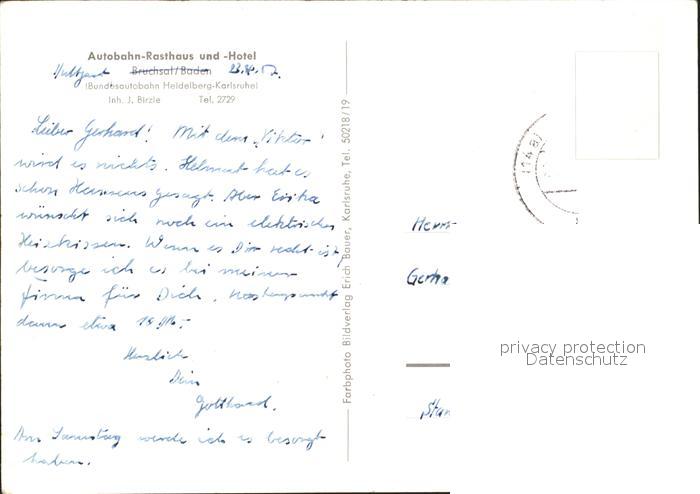 Autobahn-Rasthaus und -Hotel
Stuttgart Bruchsal/Baden
(Bundesautobahn Heidelberg-Karlsruhe)
Inh. J. Birzle Tel. 2729
Lieber Gerhard! Mit dem „Viktor“
wird es nichts. Helmut hat es
schon gesagt. Aber Erika
wünscht sich noch ein elektrisches
Heizkissen. Wenn es Dir recht ist,
besorge ich es bei meiner
Firma für Dich.
dann etwa 19 M.-
Herzlich
Dein
Gotthard.
Am Samstag werde ich es besorgt
haben.
Farbphoto Bildverlag Erich Bauer, Karlsruhe, Tel. 50218/19
Herrn
Gerha
Stan
privacy protection
Datenschutz